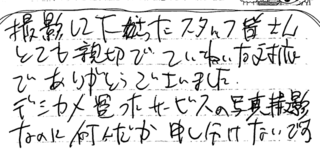 撮影して下さったスタッフ皆さん
とても親切でていねいな対応
でありがとうございました.
デジカメ買ったサービスの写真撮影
なのに何んだか申し分けないです